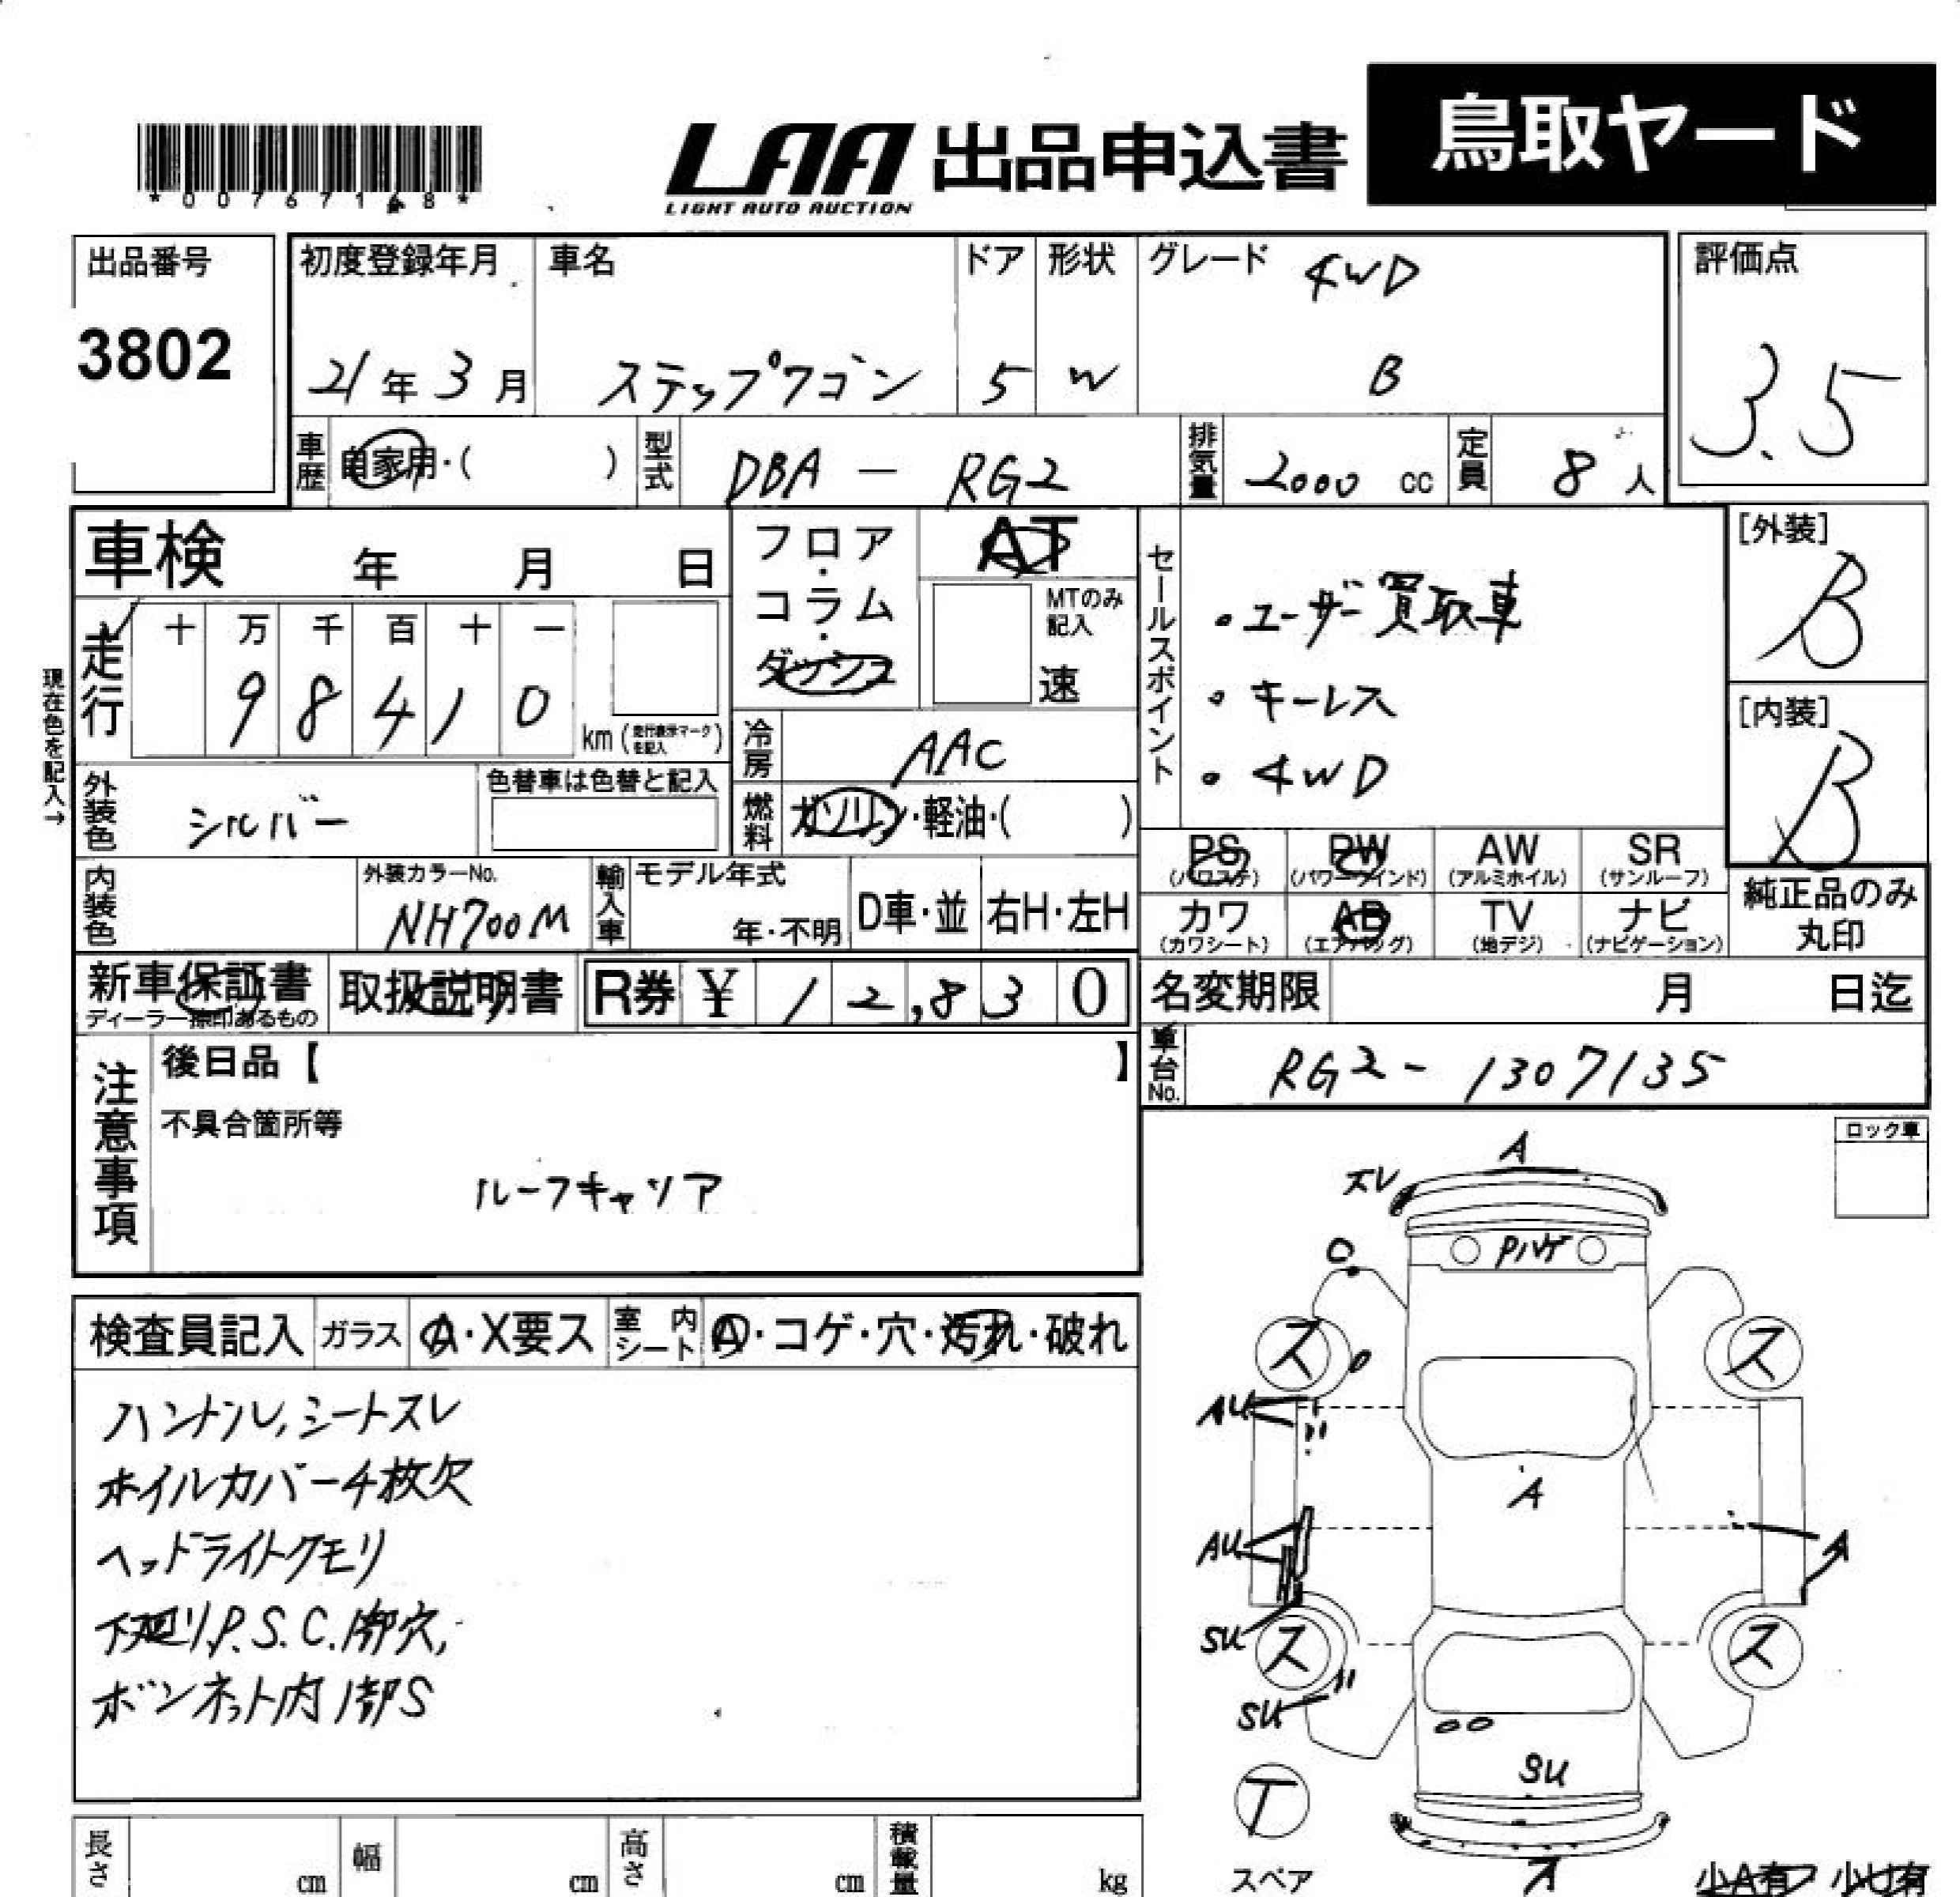 *00767168*
LAA 出品申込書 鳥取ヤード
LIGHT AUTO AUCTION
出品番号
3802
初度登録年月
21年3月
車名
ステップワゴン
ドア
5
形状
W
グレード 4WD
B
評価点
3.5
車歴 自家用・( )
型式 DBA - RG2
排気量 2000 cc
定員 8人
車検 年 月 日
走行 十 万 千 百 十 一
9 8 4 1 0 km (走行表示マークを記入)
現在色を記入→
外装色 シルバー
色替車は色替と記入
内装色
外装カラーNo.
NH700M
フロア・コラム・ダッシュ
AT
MTのみ記入
速
冷房 AAC
燃料 ガソリン・軽油・( )
輸入車 モデル年式
年・不明 D車・並 右H・左H
セールスポイント
・ユーザー買取車
・キーレス
・4WD
[外装]
B
[内装]
B
PS PW AW SR
(パワステ) (パワーウインド) (アルミホイル) (サンルーフ)
カワ AB TV ナビ
(カワシート) (エアバッグ) (地デジ) (ナビゲーション)
純正品のみ
丸印
新車保証書 取扱説明書 R券 ¥ 12,830
ディーラー捺印あるもの
名変期限 月 日迄
車台No. RG2-1307135
注意事項
後日品【 】
不具合箇所等
ルーフキャリア
ロック車
検査員記入 ガラス A・X要ス 室内シート A・コゲ・穴・汚れ・破れ
ハンドル,シートスレ
ホイルカバー4枚欠
ヘッドライトクモリ
下廻り,P.S.C.1部穴,
ボンネット内1部S
A
スレ
Pハゲ
ス
ス
AU
A
AU
A
SU
ス
ス
SU
SU
T
スペア
長さ cm 幅 cm 高さ cm 積載量 kg
少A有 少U有